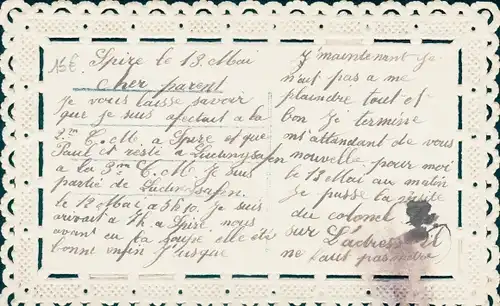 15€
Spire le 13 Mai
Cher parent
je vous laisse savoir
que je suis afectait a la
2.me C. M. a Spire et que
Paul et resté a Luduingsafen
a la 3me C. M. Je suis
partie de Luduingsafen.
le 12 Mai a 5h10. Je suis
arivait a 7h a Spire, nous
avont eu la soupe elle été
bonne enfin j'usque
J'maintenant je
n'aut pas a me
plaindre tout et
bon Je termine
en attandant de vous
nouvelle, pour moi
le 13 Mai au matin
je passe la visite
du colonel
sur L'adresse
ne faut pas mettre